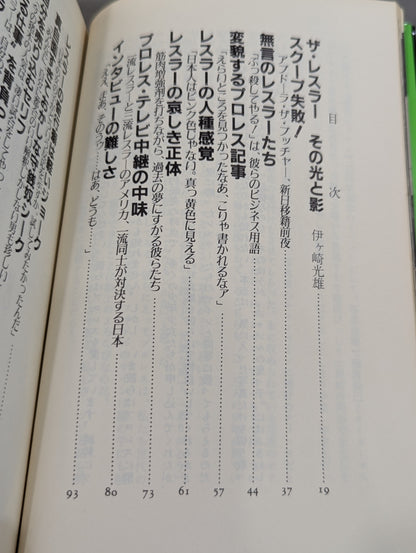 目次
ザ・レスラー その光と影 伊ヶ崎光雄 19
スクープ失敗!
アブドーラ・ザ・ブッチャー、新日移籍前夜 37
無言のレスラーたち
「ぶっ殺してやる!」は、彼らのビジネス用語 44
変貌するプロレス記事
「えらいところを見つかったなあ、こりゃ書かれるなァ」 57
レスラーの人種感覚
「日本人はピンク色じゃない。真っ黄色に見える」 61
レスラーの哀しき正体
筋肉増強剤を打ちながら、過去の夢にすがる彼らたち 73
プロレス・テレビ中継の中味
一流レスラーと三流レスラーのアメリカ、一流同士が対決する日本 80
インタビューの難しさ
「ええ、まあ、そのううー……はあ、どうも……」 93